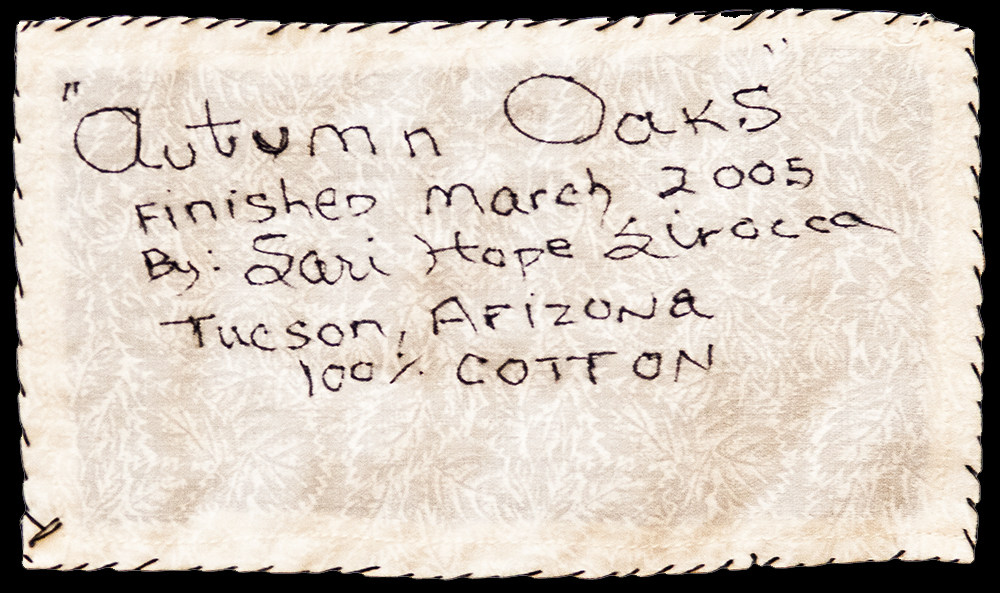 "Autumn Oaks"
Finished March 2005
By: Sari Hope Sirocca
Tucson, Arizona
100% COTTON